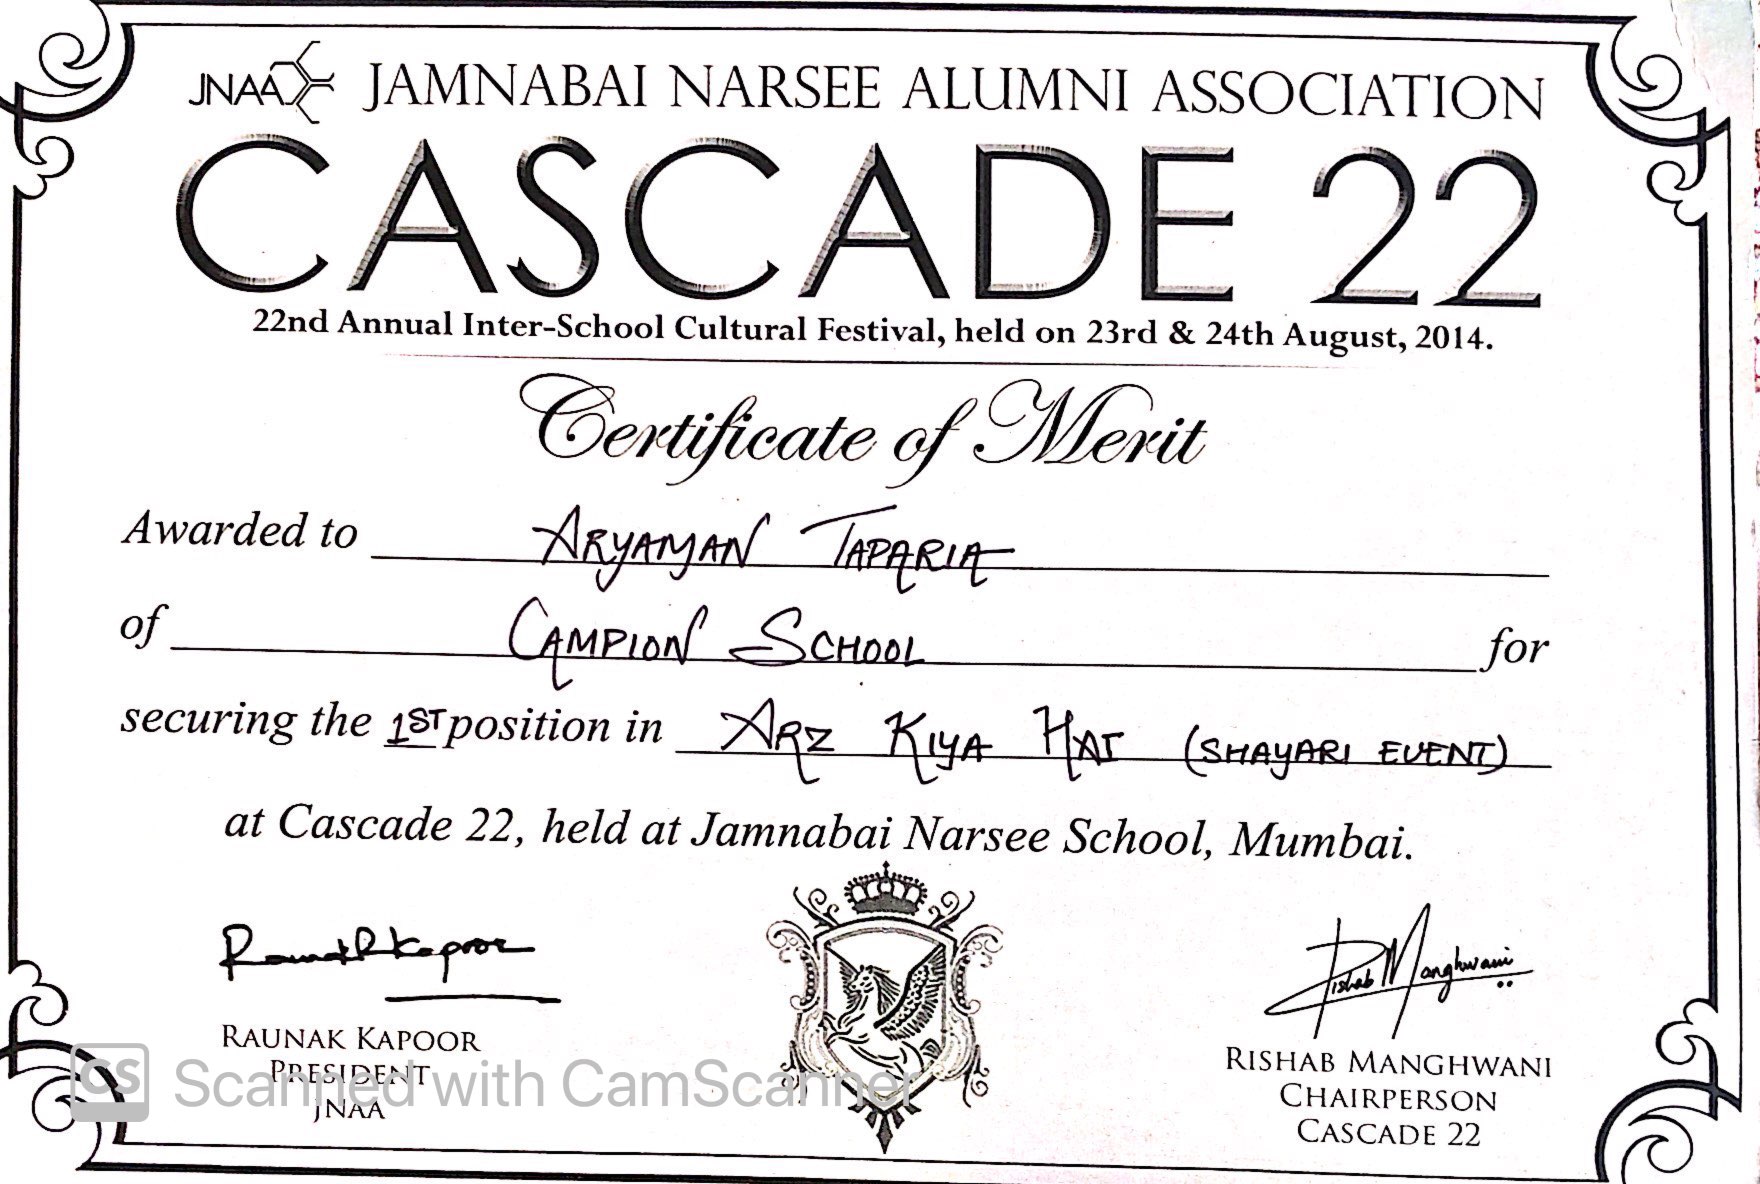 JNAA JAMNABAI NARSEE ALUMNI ASSOCIATION
CASCADE 22
22nd Annual Inter-School Cultural Festival, held on 23rd & 24th August, 2014.
Certificate of Merit
Awarded to ARYAMAN TAPARIA
of CAMPION SCHOOL for
securing the 1ST position in ARZ KIYA HAI (SHAYARI EVENT)
at Cascade 22, held at Jamnabai Narsee School, Mumbai.
Raunak R Kapoor
RAUNAK KAPOOR
PRESIDENT
JNAA
Rishab Manghwani
RISHAB MANGHWANI
CHAIRPERSON
CASCADE 22
CS Scanned with CamScanner